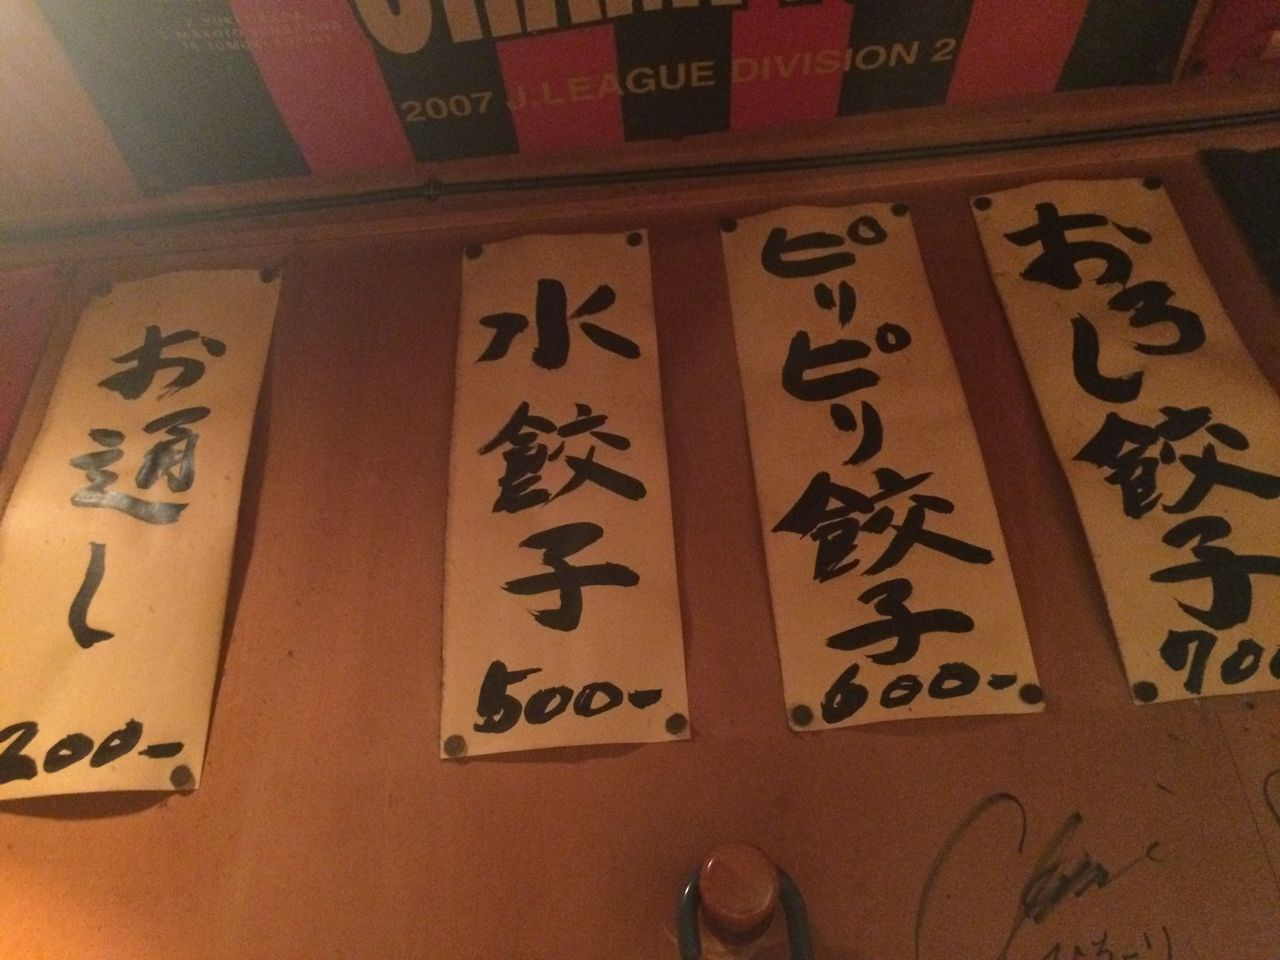 2007 J.LEAGUE DIVISION 2
お通し
200-
水餃子
500-
ピリピリ餃子
600-
おろし餃子
700